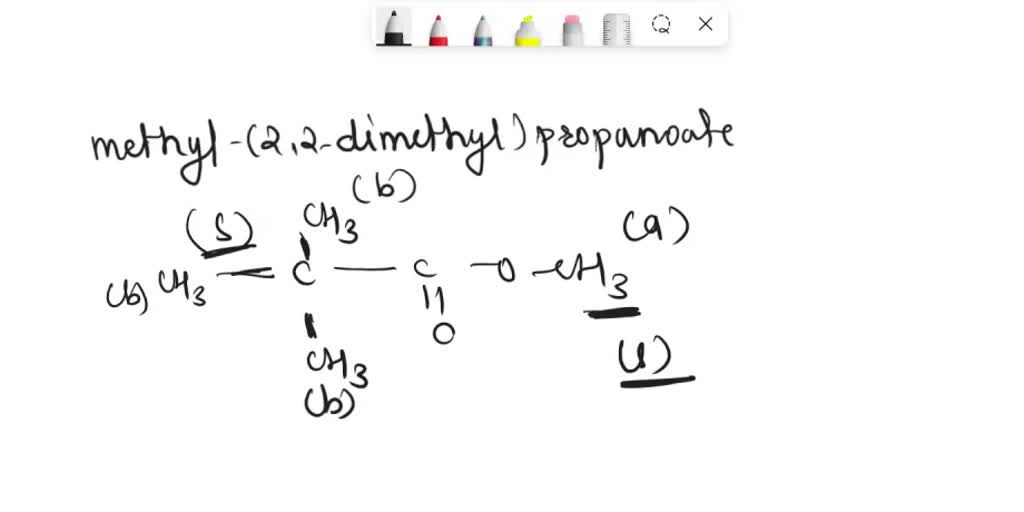 methyl-(2,2-dimethyl)propanoate
(b)
(s) CH3 (a)
(b) CH3 — C — C — O — CH3
O
CH3
(b)